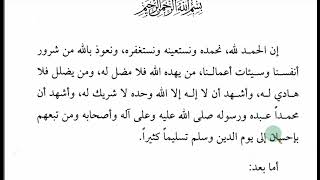 بسم الله الرحمن الرحيم
إن الحمد لله، نحمده ونستعينه ونستغفره، ونعوذ بالله من شرور
أنفسنا وسيئات أعمالنا، من يهده الله فلا مضل له، ومن يضلل فلا
هادي له، وأشهد أن لا إله إلا الله وحده لا شريك له، وأشهد أن
محمداً عبده ورسوله صلى الله عليه وعلى آله وأصحابه ومن تبعهم
بإحسان إلى يوم الدين وسلم تسليماً كثيراً.
أما بعد: